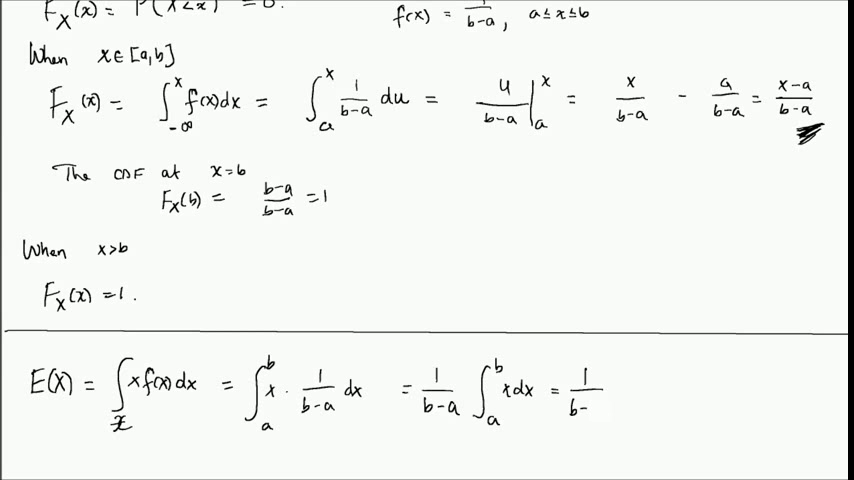 F_X(x) = P(X<x) = 0.
f(x) = 1/(b-a), a≤x≤b
When x∈[a,b]
F_X(x) = ∫_{-∞}^{x} f(x)dx = ∫_a^x 1/(b-a) du = u/(b-a) |_a^x = x/(b-a) - a/(b-a) = (x-a)/(b-a)
The CDF at x=b
F_X(b) = (b-a)/(b-a) = 1
When x>b
F_X(x) = 1.
E(X) = ∫_x x f(x) dx = ∫_a^b x · 1/(b-a) dx = 1/(b-a) ∫_a^b x dx = 1/(b-